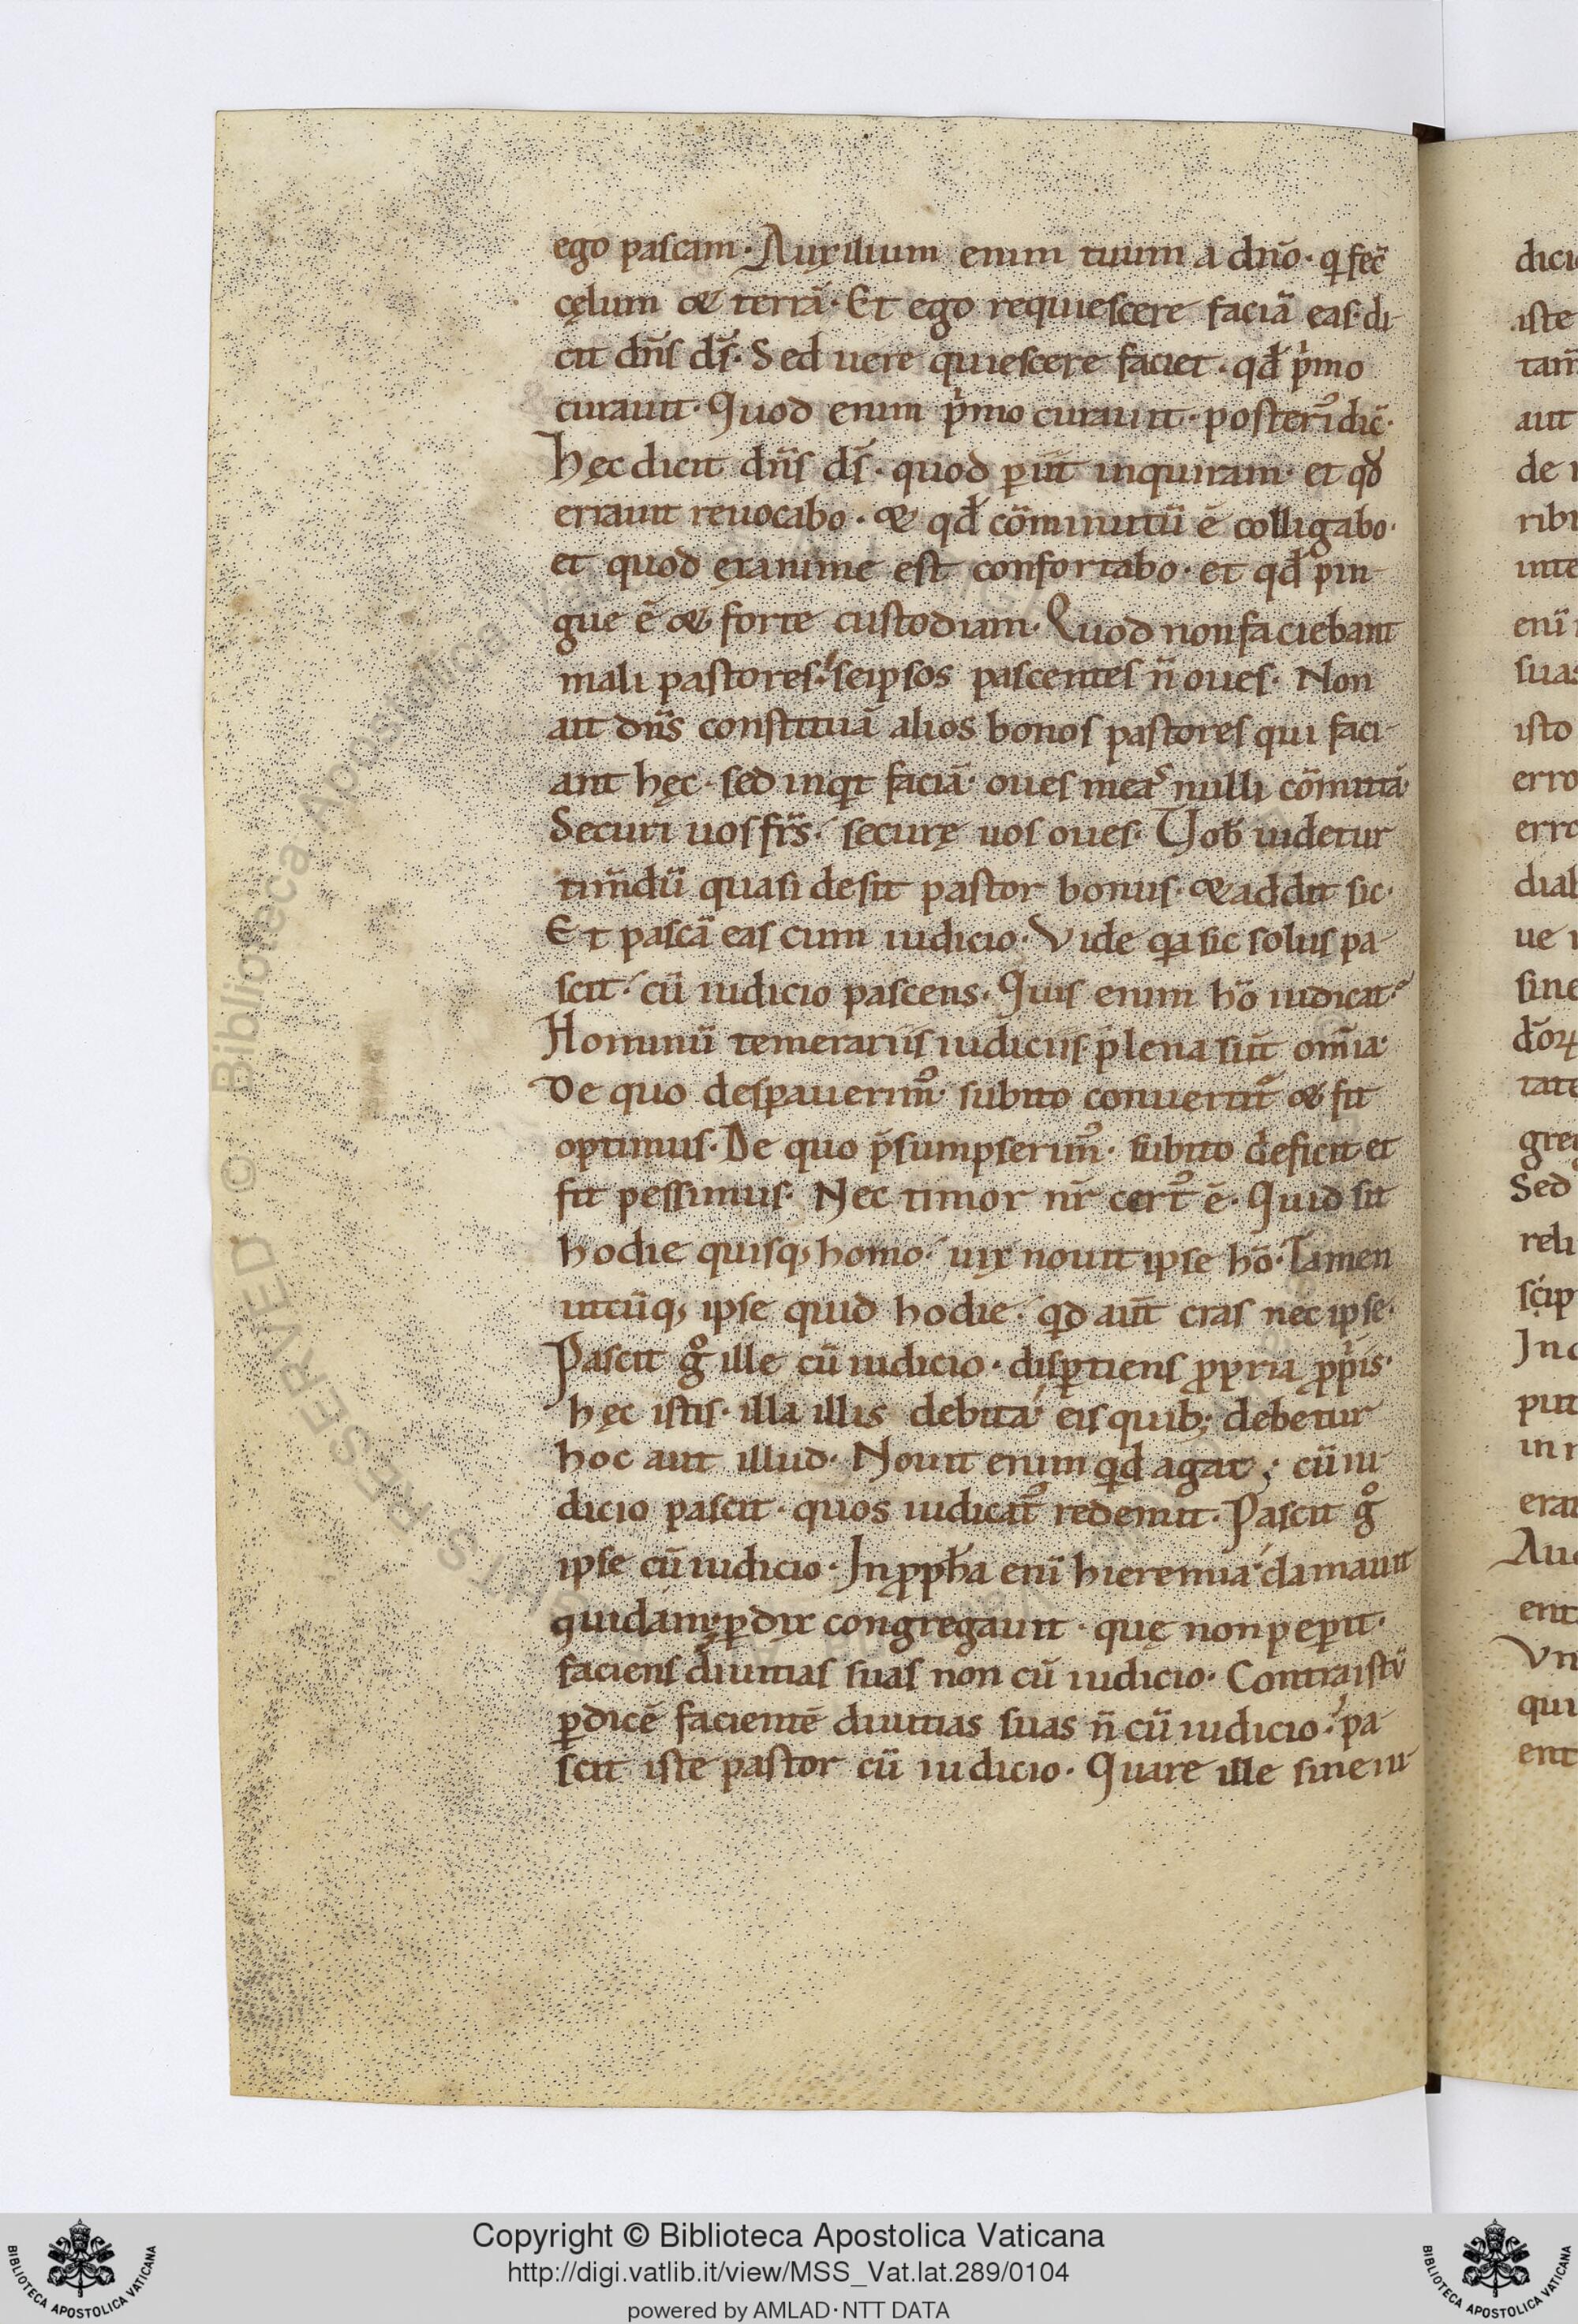 ego pascam. Auxilium enim tuum a dño. q̇ fec̄
cęlum & terrā. Et ego requiescere faciā eas. di
cit dn̄s ds̄. Sed uere quiescere faciet. qđ p̍mo
curauit. Quod enim p̍mo curauit. posteri᷒ dic̄.
hęc dicit dn̄s ds̄. quod ꝑiit inquiram. et qđ
errauit reuocabo. & qđ cōminutū ē colligabo.
et quod exanime est confortabo. et qđ pin
gue ē & forte custodiam. Quod non faciebant
mali pastores. seipsos pascentes n̄ oues. Non
ait dn̄s constituā alios bonos pastores qui faci
ant hęc. sed inqͥt faciā. oues meas nulli cōmittā.
Securi uos fr̄s. securę uos oues. Uob̄ uidetur
tim̄dū quasi desit pastor bonus. & addit sic.
Et pascā eas cum iudicio. Vide qa sic solus pa
scit. cū iudicio pascens. Quis enim hō iudicat?
Hominū temerariis iudiciis plena sūt om̄ia.
De quo desꝑauerim᷒. subito conuertit᷒ & fit
optimus. De quo p̄sumpserim᷒. subito deficit et
fit pessimus. Nec timor nr̄ cert᷒ ē. Quid sit
hodie quisq; homo. uix nouit ipse hō. Tamen
utcūq; ipse quid hodie. qͥd aūt cras nec ipse.
Pascit gͦ ille cū iudicio. disꝑtiens ꝓpria ꝓpͥis.
hęc istis. illa illis debita. eis quib; debetur
hoc aut illud. Nouit enim qͥd agat; cū iu
dicio pascit. quos iudicat᷒ redemit. Pascit gͦ
ipse cū iudicio. In ꝓph̄a enī hieremia clamauit
quidam. ꝑdix congregauit. quę non peꝑit.
faciens diuitias suas non cū iudicio. Contra istū
ꝑdicē facientē diuitias suas n̄ cū iudicio. pa
scit iste pastor cū iudicio. Quare ille sine iu
Copyright © Biblioteca Apostolica Vaticana
http://digi.vatlib.it/view/MSS_Vat.lat.289/0104
powered by AMLAD·NTT DATA